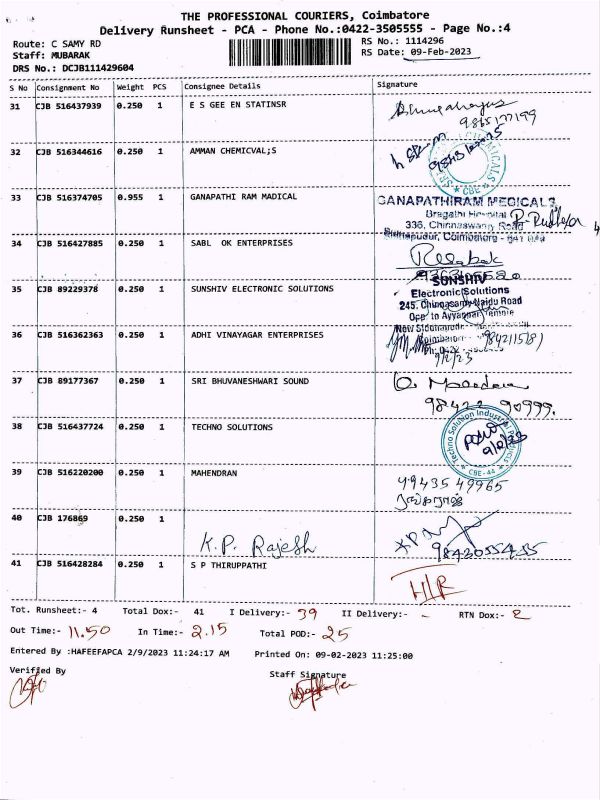 THE PROFESSIONAL COURIERS, Coimbatore
Delivery Runsheet - PCA - Phone No.:0422-3505555 - Page No.:4
Route: C SAMY RD RS No.: 1114296
Staff: MUBARAK RS Date: 09-Feb-2023
DRS No.: DCJB111429604
S No Consignment No Weight PCS Consignee Details Signature
31 CJB 516437939 0.250 1 E S GEE EN STATINSR
9865177199
32 CJB 516344616 0.250 1 AMMAN CHEMICVAL;S
CHEMICALS
CBE
33 CJB 516374705 0.955 1 GANAPATHI RAM MADICAL
GANAPATHIRAM MEDICALS
Bragathi Hospital
336, Chinnaswamy Road
Coimbatore
34 CJB 516427885 0.250 1 SABL OK ENTERPRISES
35 CJB 89229378 0.250 1 SUNSHIV ELECTRONIC SOLUTIONS
SUNSHIV
Electronic Solutions
245. Chinnasamy Naidu Road
Opp. to Ayyappan Temple
36 CJB 516362363 0.250 1 ADHI VINAYAGAR ENTERPRISES
9842115181
9/2/23
37 CJB 89177367 0.250 1 SRI BHUVANESHWARI SOUND
98422 90999.
38 CJB 516437724 0.250 1 TECHNO SOLUTIONS
Techno Solution Industrial Products
CBE-44
9/2/23
39 CJB 516220200 0.250 1 MAHENDRAN
99435 49965
40 CJB 176869 0.250 1
K.P. Rajesh
41 CJB 516428284 0.250 1 S P THIRUPPATHI
Tot. Runsheet:- 4 Total Dox:- 41 I Delivery:- 39 II Delivery:- - RTN Dox:- 2
Out Time:- 11.50 In Time:- 2.15 Total POD:- 25
Entered By :HAFEEFAPCA 2/9/2023 11:24:17 AM Printed On: 09-02-2023 11:25:00
Verified By Staff Signature